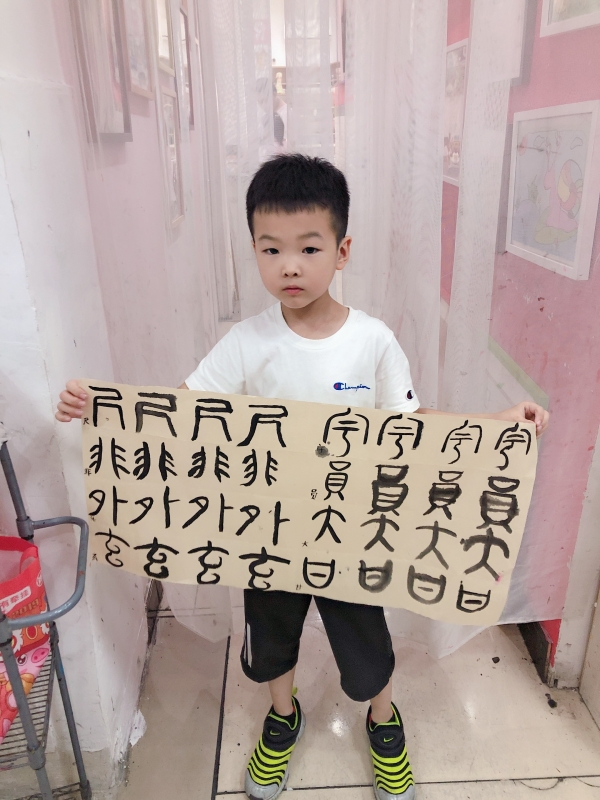 尺尺尺尺
非非非非
外外外外
玄玄玄玄
宇宇宇宇
員員員員
大大大大
Champion